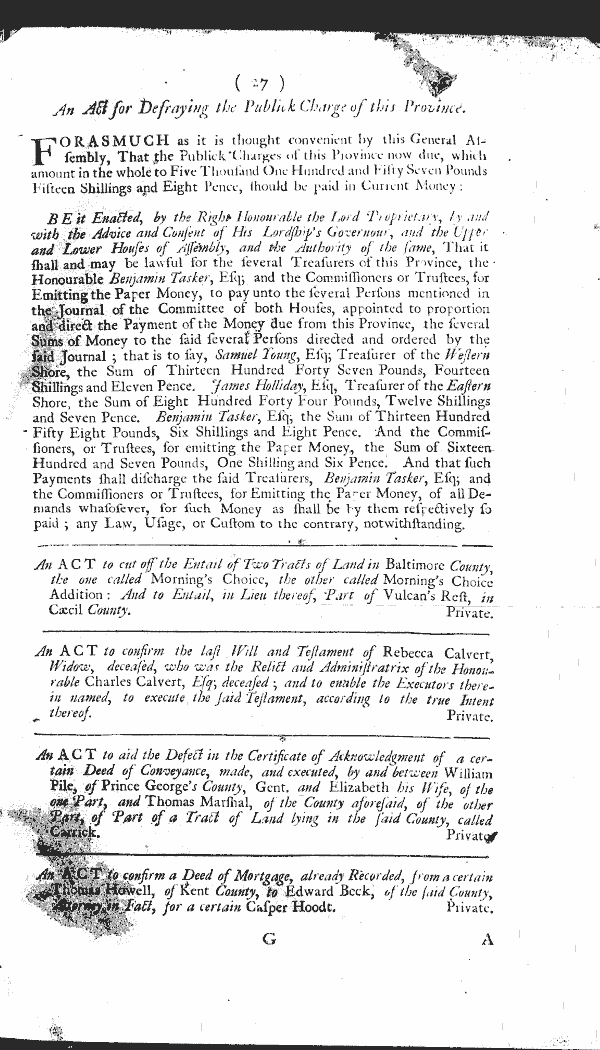 ( 27 )
An Act for Defraying the Publick Charge of this Province.
FORASMUCH as it is thought convenient by this General Aſ-
ſembly, That the Publick Charges of this Province now due, which
amount in the whole to Five Thouſand One Hundred and Fifty Seven Pounds
Fifteen Shillings and Eight Pence, ſhould be paid in Current Money:
BE it Enacted, by the Right Honourable the Lord Proprietary, by and
with the Advice and Conſent of His Lordſhip's Governour, and the Upper
and Lower Houſes of Aſſembly, and the Authority of the ſame, That it
ſhall and may be lawful for the ſeveral Treaſurers of this Province, the
Honourable Benjamin Tasker, Eſq; and the Commiſſioners or Truſtees, for
Emitting the Paper Money, to pay unto the ſeveral Perſons mentioned in
the Journal of the Committee of both Houſes, appointed to proportion
and direct the Payment of the Money due from this Province, the ſeveral
Sums of Money to the ſaid ſeveral Perſons directed and ordered by the
ſaid Journal ; that is to ſay, Samuel Young, Eſq; Treaſurer of the Weſtern
Shore, the Sum of Thirteen Hundred Forty Seven Pounds, Fourteen
Shillings and Eleven Pence. James Holliday, Eſq, Treaſurer of the Eaſtern
Shore, the Sum of Eight Hundred Forty Four Pounds, Twelve Shillings
and Seven Pence. Benjamin Tasker, Eſq; the Sum of Thirteen Hundred
Fifty Eight Pounds, Six Shillings and Eight Pence. And the Commiſ-
ſioners, or Truſtees, for emitting the Paper Money, the Sum of Sixteen
Hundred and Seven Pounds, One Shilling and Six Pence. And that ſuch
Payments ſhall diſcharge the ſaid Treaſurers, Benjamin Tasker, Eſq; and
the Commiſſioners or Truſtees, for Emitting the Paper Money, of all De-
mands whaſoſever, for ſuch Money as ſhall be by them reſpectively ſo
paid ; any Law, Uſage, or Cuſtom to the contrary, notwithſtanding.
An ACT to cut off the Entail of Two Tracts of Land in Baltimore County,
the one called Morning's Choice, the other called Morning's Choice
Addition : And to Entail, in Lieu thereof, Part of Vulcan's Reſt, in
Cæcil County. Private.
An ACT to confirm the laſt Will and Teſtament of Rebecca Calvert,
Widow, deceaſed, who was the Relict and Adminiſtratrix of the Honou-
rable Charles Calvert, Eſq; deceaſed ; and to enable the Executors there-
in named, to execute the ſaid Teſtament, according to the true Intent
thereof. Private.
An ACT to aid the Defect in the Certificate of Acknowledgment of a cer-
tain Deed of Conveyance, made, and executed, by and between William
Pile, of Prince George's County, Gent. and Elizabeth his Wife, of the
one Part, and Thomas Marſhal, of the County aforeſaid, of the other
Part, of Part of a Tract of Land lying in the ſaid County, called
Carrick. Private
An ACT to confirm a Deed of Mortgage, already Recorded, from a certain
Thomas Howell, of Kent County, to Edward Beck, of the ſaid County,
Attorney in Fact, for a certain Caſper Hoodt. Private.
G A